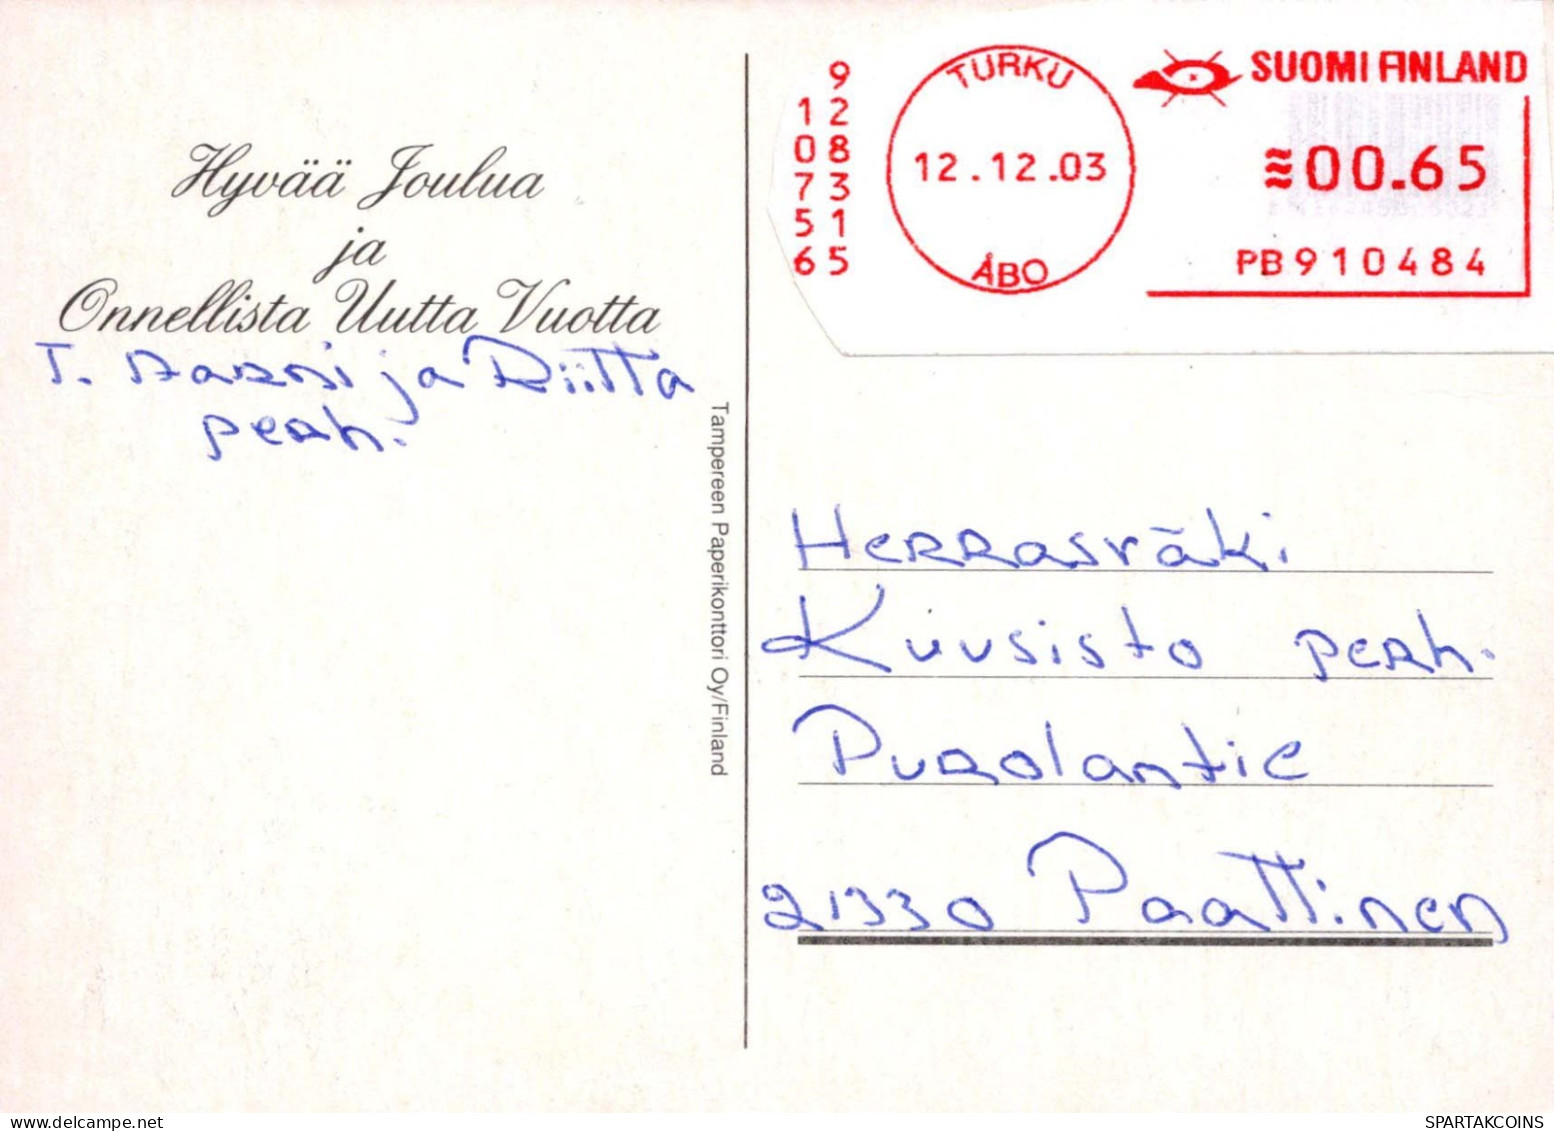 Hyvää Joulua
ja
Onnellista Uutta Vuotta
T. Aarni ja Riitta
perh.
Tampereen Paperikonttori Oy/Finland
9
12
08
73
51
65
TURKU
12.12.03
ÅBO
SUOMI FINLAND
00.65
PB910484
Herrasväki
Kuusisto perh.
Purolantie
21330 Paattinen
SPARTAKCOINS